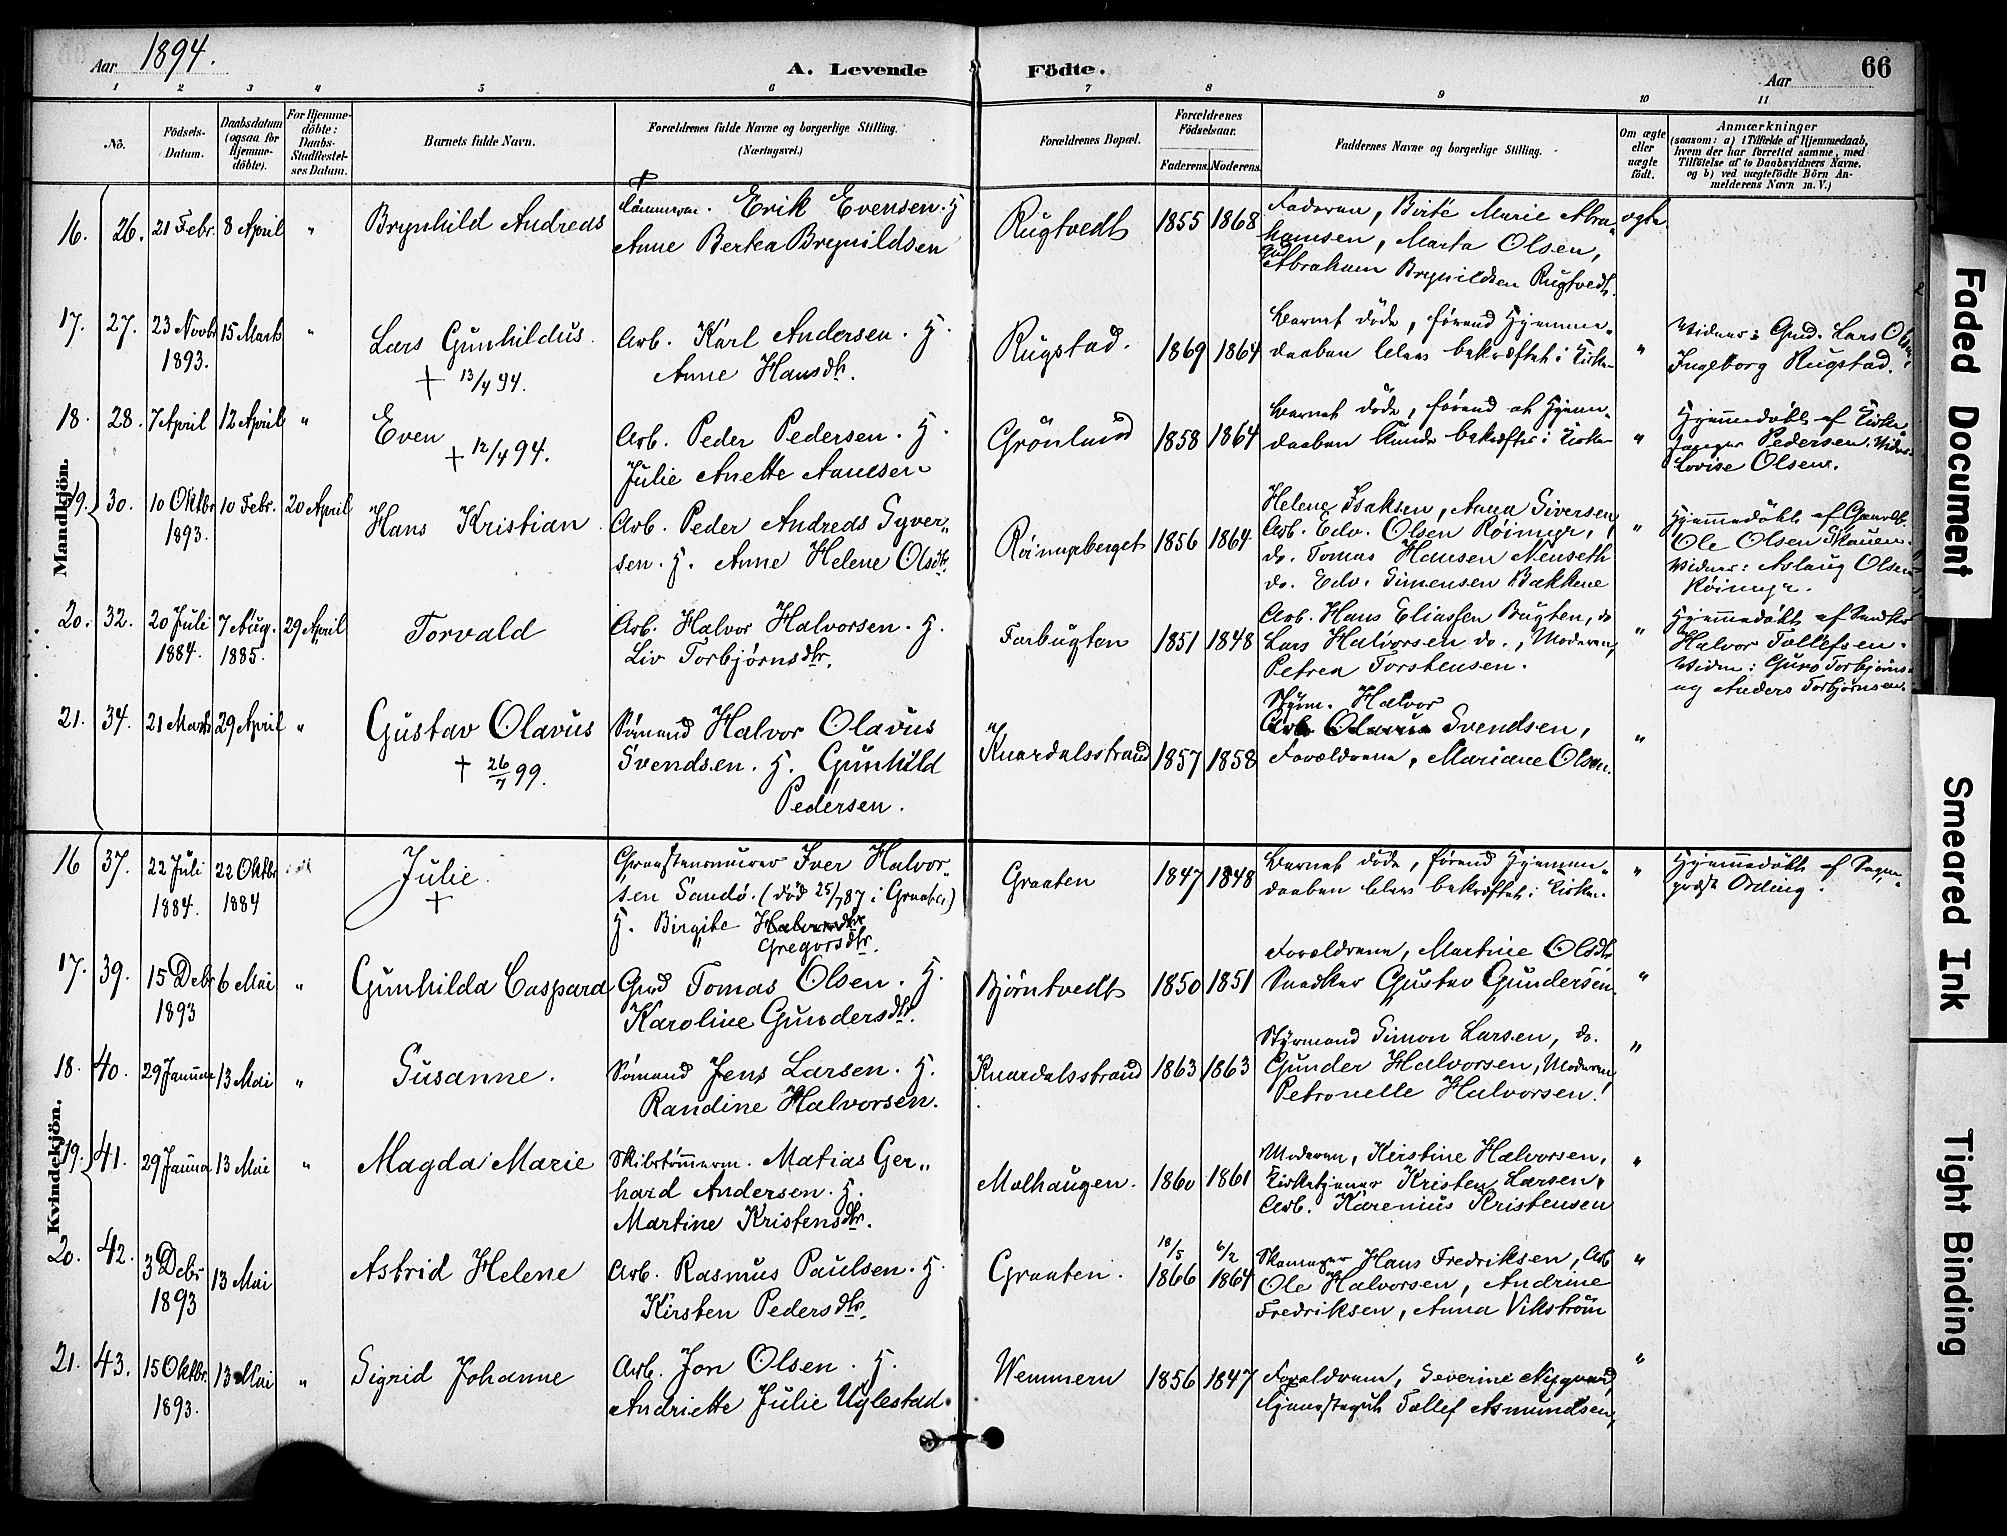 Aar 1894.
A. Levende Födte.
Aar
66
1 2 3 4 5 6 7 8 9 10 11
No.
Födsels-
Datum.
Daabsdatum
(ogsaa for
Hjemme-
döbte).
For Hjemme-
döbte:
Daabs-
Stadfæstel-
ses Datum.
Barnets fulde Navn.
Forældrenes fulde Navne og borgerlige Stilling.
(Næringsvei.)
Forældrenes Bopæl.
Forældrenes
Födselsaar.
Faderens. Moderens.
Faddernes Navne og borgerlige Stilling.
Om ægte
eller
uægte
födt.
Anmærkninger
(saasom: a) i Tilfælde af Hjemmedaab,
hvem der har forrettet samme, med
Tilföielse af to Daabsvidners Navne.
og b) ved uægtefödte Börn An-
melderens Navn m. V.)
Mandkjön.
16. 26. 21 Febr. 8 April "
Brynhild Andreds
Erik Evensen. H
Anne Berta Brynildsen
Rugtvedt
1855 1868
Faderen, Birte Marie Abra-
hamsen, Marta Olsen,
Gud Abraham Brynildsen Rugtvedt.
ægte
17. 27. 23 Novbr 15 Marts "
1893.
Lars Gunhildus.
+ 13/4 94.
Arb. Karl Andersen. H.
Anne Hansdtr.
Rugstad.
1869 1864
Barnet døde, førend Hjemme-
daaben blev bekræftet i Kirken
"
Vidner: Gmd. Lars Olsen,
Ingeborg Rugstad.
18. 28. 7 April 12 April "
Even
+ 12/4 94.
Arb. Peder Pedersen. H.
Julie Anette Aamesen
Grönlund
1858 1864
Barnet døde, førend at Hjemme-
daaben kunde bekræftes i Kirken
"
Hjemmedöbt af Kirke-
sanger Pedersen. Vidner
Lovise Olsen.
19. 30. 10 Oktbr 10 Febr. 20 April
1893.
Hans Kristian
Arb. Peder Andreds Syver-
sen. H. Anne Helene Olsdtr.
Röimyrberget
1856 1864
Helene Isaksen, Anna Siversen
Arb. Edv. Olsen Röimyr,
do. Tomas Hansen Menseth
do. Edv. Simensen Bakkene
"
Hjemmedöbt af Gaardb.
Ole Olsen Skauen.
Vidner: Aslaug Olsen
Röimyr.
20. 32. 20 Juli 7 Aug. 29 April
1884. 1885.
Torvald
Arb. Halvor Halvorsen. H.
Liv Torbjörnsdtr.
Farbugten
1851 1848
Arb. Hans Eliassen Bugten, do
Lars Halvorsen do., Moderen,
Petrea Torstensen.
"
Hjemmedöbt af Snedker
Halvor Tollefsen.
Vidn: Guro Torbjörns-
og Anders Torbjörnsen.
21. 34. 21 Marts 29 April "
Gustav Olavus
+ 26/7 99.
Sömand Halvor Olavus
Svendsen. H. Gunhild
Pedersen.
Knardalsstrand
1857 1858
Styrm. Halvor
Arb. Olavus Svendsen,
Forældrene, Mariane Olsen.
"
Kvindekjön.
16 37. 22 Juli 22 Oktbr
1884. 1884
Julie.
+
Graastensmurer Iver Halvor-
sen Sandö. (död 25/7 87 i Graaten)
H. Birgite Halvorsdtr
Gregorsdtr.
Graaten
1847 1848
Barnet døde, førend Hjemme-
daaben blev bekræftet i Kirken.
"
Hjemmedöbt af Sogne-
præst Ording.
17. 39. 15 Debr 6 Mai "
1893
Gunhilda Caspara
Gmd Tomas Olsen. H.
Karoline Gundersdtr.
Björntvedt
1850 1851
Forældrene, Martine Olsdtr
Snedker Gustav Gundersen.
"
18. 40. 29 Januar 13 Mai "
Susanne.
Sömand Jens Larsen. H.
Randine Halvorsen.
Knardalsstrand
1863 1863
Styrmand Simon Larsen, do.
Gunder Halvorsen, Moderen,
Petronelle Halvorsen.
"
19. 41. 29 Janua 13 Mai "
Magda Marie
Skibstömmerm. Matias Ger-
hard Andersen. H.
Martine Kristensdtr.
Molhaugen.
1860 1861
Moderen, Kirstine Halvorsen,
Kirketjener Kristen Larsen,
Arb. Karenius Kristensen
"
20. 42. 3 Debr 13 Mai
1893
Astrid Helene
Arb. Rasmus Paulsen. H.
Kirsten Pedersdtr.
Graaten.
18/5 6/2
1866 1864
Skomager Hans Fredriksen, Arb
Ole Halvorsen, Andrine
Fredriksen, Anna Vikström
"
21. 43. 15 Oktbr. 13 Mai "
1893.
Sigrid Johanne
Arb. Jon Olsen. H.
Andriette Julie Uglestad.
Wemmern
1856 1847
Forældrene, Severine Nygaard,
Tjenestegut Tallef Asmundsen,
"
Faded Document
Smeared Ink
Tight Binding